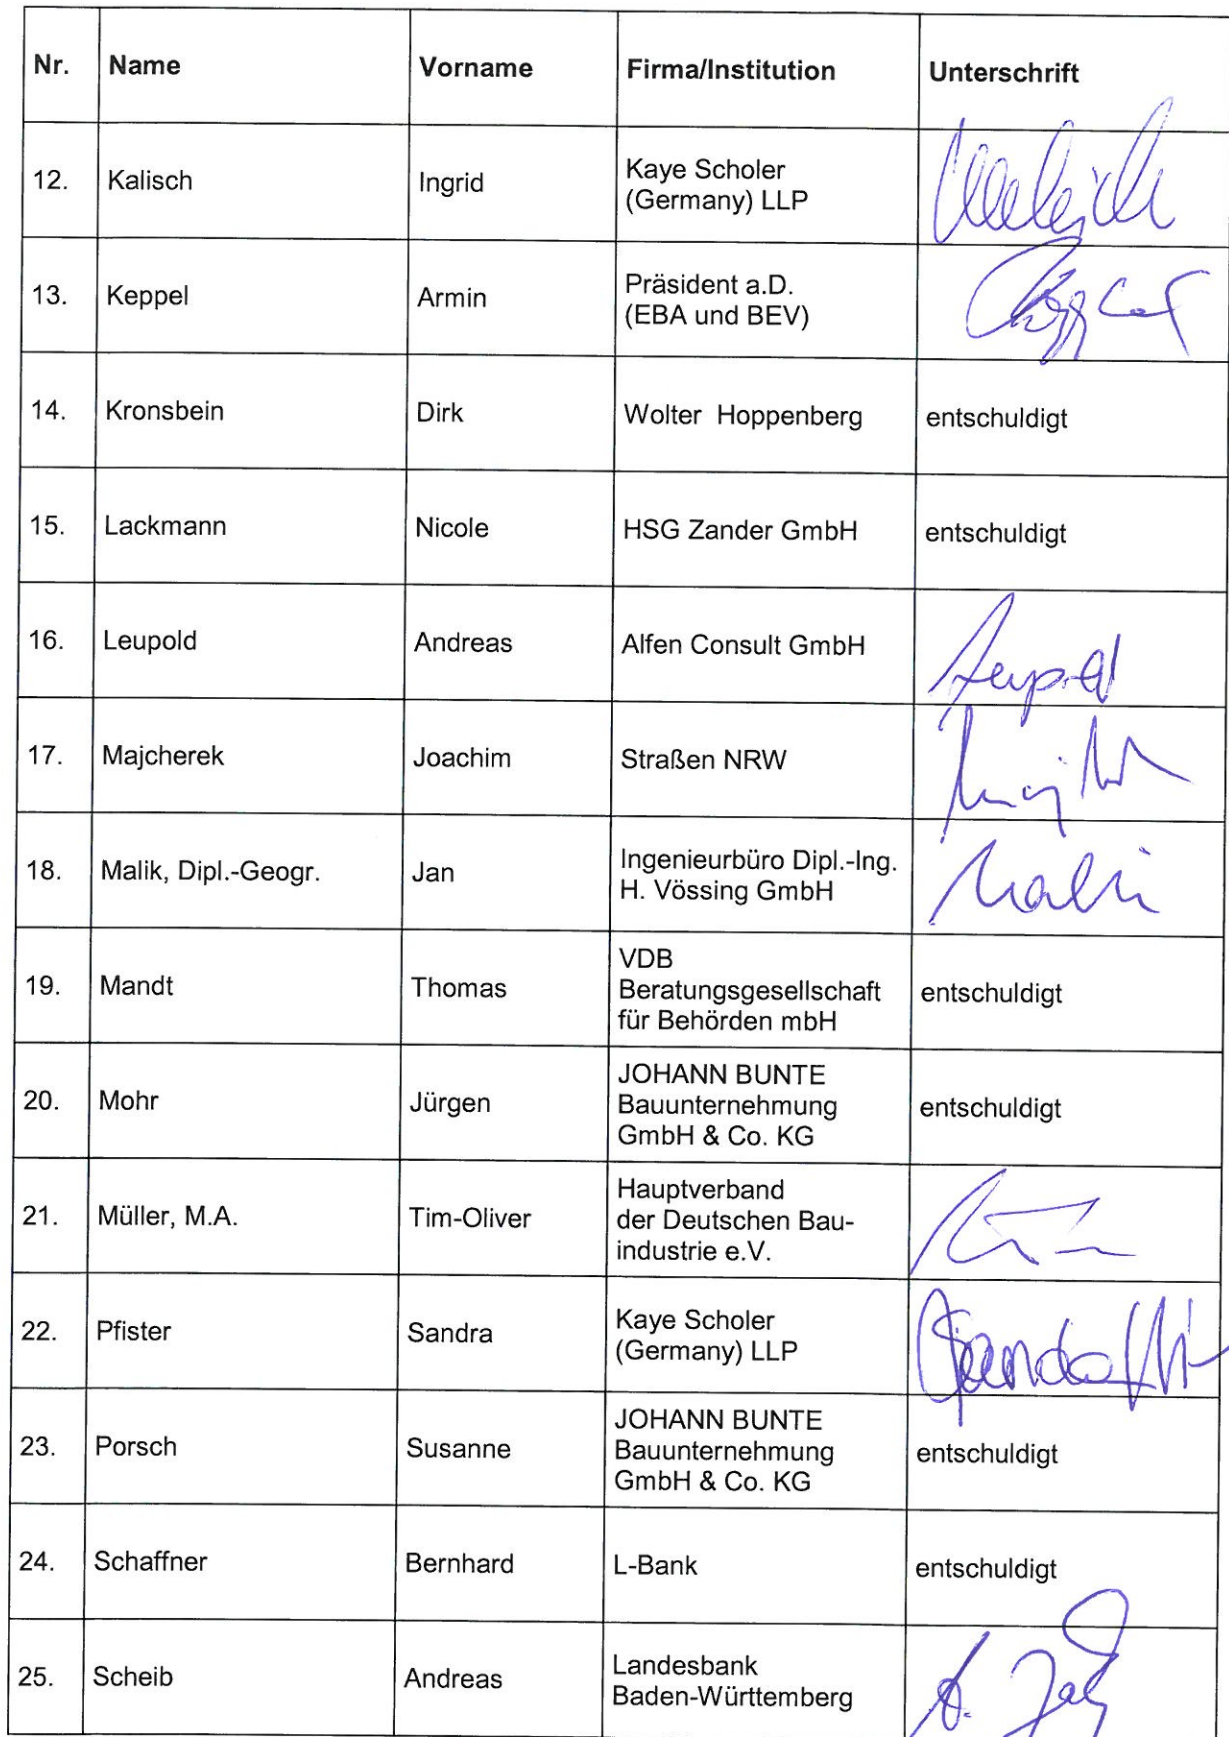 Nr. Name Vorname Firma/Institution Unterschrift
12. Kalisch Ingrid Kaye Scholer
(Germany) LLP
13. Keppel Armin Präsident a.D.
(EBA und BEV)
14. Kronsbein Dirk Wolter Hoppenberg entschuldigt
15. Lackmann Nicole HSG Zander GmbH entschuldigt
16. Leupold Andreas Alfen Consult GmbH
17. Majcherek Joachim Straßen NRW
18. Malik, Dipl.-Geogr. Jan Ingenieurbüro Dipl.-Ing.
H. Vössing GmbH
19. Mandt Thomas VDB
Beratungsgesellschaft
für Behörden mbH
entschuldigt
20. Mohr Jürgen JOHANN BUNTE
Bauunternehmung
GmbH & Co. KG
entschuldigt
21. Müller, M.A. Tim-Oliver Hauptverband
der Deutschen Bau-
industrie e.V.
22. Pfister Sandra Kaye Scholer
(Germany) LLP
23. Porsch Susanne JOHANN BUNTE
Bauunternehmung
GmbH & Co. KG
entschuldigt
24. Schaffner Bernhard L-Bank entschuldigt
25. Scheib Andreas Landesbank
Baden-Württemberg